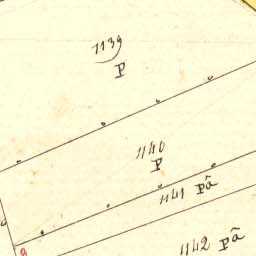 1139
P
1140
P
1141 Pâ
1142 Pâ